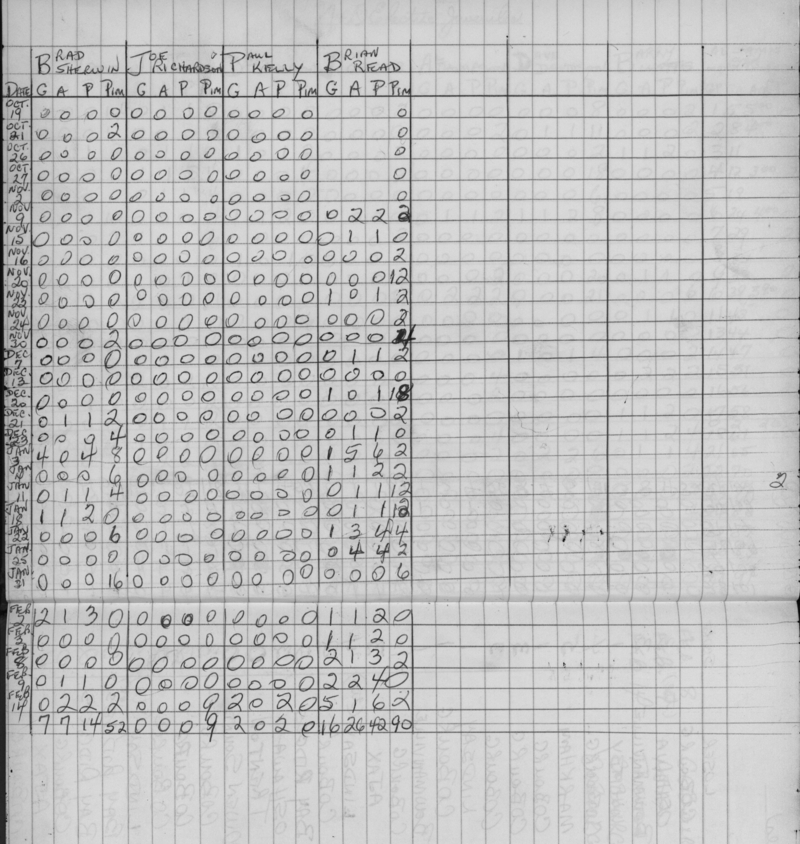 BRAD SHERWIN JOE RICHARDSON PAUL KELLY BRIAN READ
DATE G A P Pim G A P Pim G A P Pim G A P Pim
OCT. 19 0 0 0 0 0 0 0 0 0 0 0 0 0
OCT. 21 0 0 0 2 0 0 0 0 0 0 0 0 0
OCT. 26 0 0 0 0 0 0 0 0 0 0 0 0 0
OCT 27 0 0 0 0 0 0 0 0 0 0 0 0 0
NOV. 2 0 0 0 0 0 0 0 0 0 0 0 0 0
NOV 9 0 0 0 0 0 0 0 0 0 0 0 0 0 2 2 2
NOV. 15 0 0 0 0 0 0 0 0 0 0 0 0 0 1 1 0
NOV 16 0 0 0 0 0 0 0 0 0 0 0 0 0 0 0 2
NOV. 20 0 0 0 0 0 0 0 0 0 0 0 0 0 0 0 12
NOV. 22 0 0 0 0 0 0 0 0 0 0 0 0 1 0 1 2
NOV. 24 0 0 0 0 0 0 0 0 0 0 0 0 0 0 0 2
NOV 30 0 0 0 2 0 0 0 0 0 0 0 0 0 0 0 4
DEC 7 0 0 0 0 0 0 0 0 0 0 0 0 0 1 1 2
DEC. 13 0 0 0 0 0 0 0 0 0 0 0 0 0 0 0 0
DEC. 20 0 0 0 0 0 0 0 0 0 0 0 0 1 0 1 18
DEC. 21 0 1 1 2 0 0 0 0 0 0 0 0 0 0 0 2
DEC 0 0 0 4 0 0 0 0 0 0 0 0 0 1 1 0
JAN 3 4 0 4 8 0 0 0 0 0 0 0 0 1 5 6 2
JAN 0 0 0 6 0 0 0 0 0 0 0 0 1 1 2 2
2
JAN 11 0 1 1 4 0 0 0 0 0 0 0 0 0 1 1 12
JAN 18 1 1 2 0 0 0 0 0 0 0 0 0 0 1 1 12
JAN 22 0 0 0 6 0 0 0 0 0 0 0 0 1 3 4 4
JAN. 25 0 0 0 0 0 0 0 0 0 0 0 0 0 4 4 2
JAN 31 0 0 0 16 0 0 0 0 0 0 0 0 0 0 0 6
FEB 2 2 1 3 0 0 0 0 0 0 0 0 0 1 1 2 0
FEB. 3 0 0 0 0 0 0 0 0 0 0 0 0 1 1 2 0
FEB 8 0 0 0 0 0 0 0 0 0 0 0 0 2 1 3 2
FEB 9 0 1 1 0 0 0 0 0 0 0 0 0 2 2 4 0
FEB 14 0 2 2 2 0 0 0 9 2 0 2 0 5 1 6 2
7 7 14 52 0 0 0 9 2 0 2 0 16 26 42 90